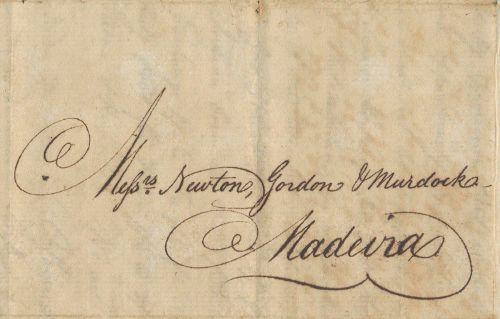 Messrs. Newton, Gordon & Murdock
Madeira